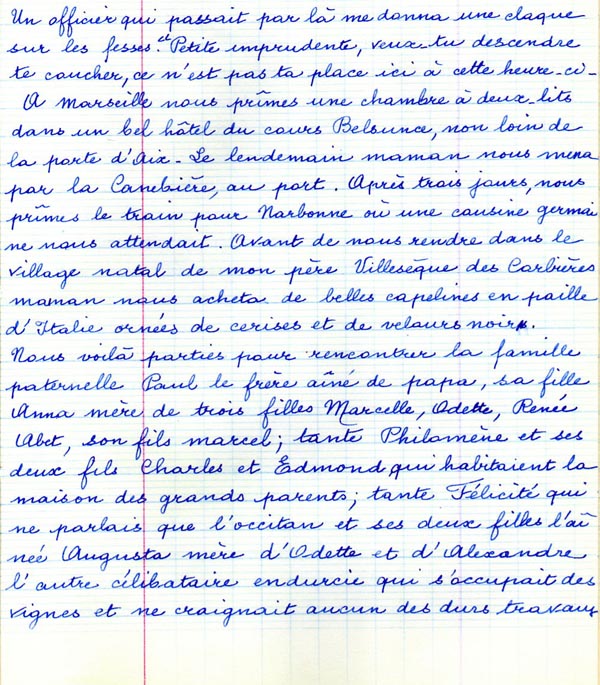 Un officier qui passait par là me donna une claque
sur les fesses. et "Petite imprudente, veux-tu descendre
te coucher, ce n'est pas ta place ici à cette heure-ci-
A Marseille nous prîmes une chambre à deux lits
dans un bel hôtel du cours Belsunce, non loin de
la porte d'Aix. Le lendemain maman nous mena
par la Canebière, au port. Après trois jours, nous
prîmes le train pour Narbonne où une cousine germai
ne nous attendait. Avant de nous rendre dans le
village natal de mon père Villesèque des Corbières
maman nous acheta de belles capelines en paille
d'Italie ornées de cerises et de velours noir.
Nous voilà parties pour rencontrer la famille
paternelle Paul le frère aîné de papa, sa fille
Anna mère de trois filles Marcelle, Odette, Renée
Abet, son fils marcel; tante Philomène et ses
deux fils Charles et Edmond qui habitaient la
maison des grands parents; tante Félicité qui
ne parlais que l'occitan et ses deux filles l'aî
née Augusta mère d'Odette et d'Alexandre
l'autre célibataire endurcie qui s'occupait des
vignes et ne craignait aucun des durs travaux